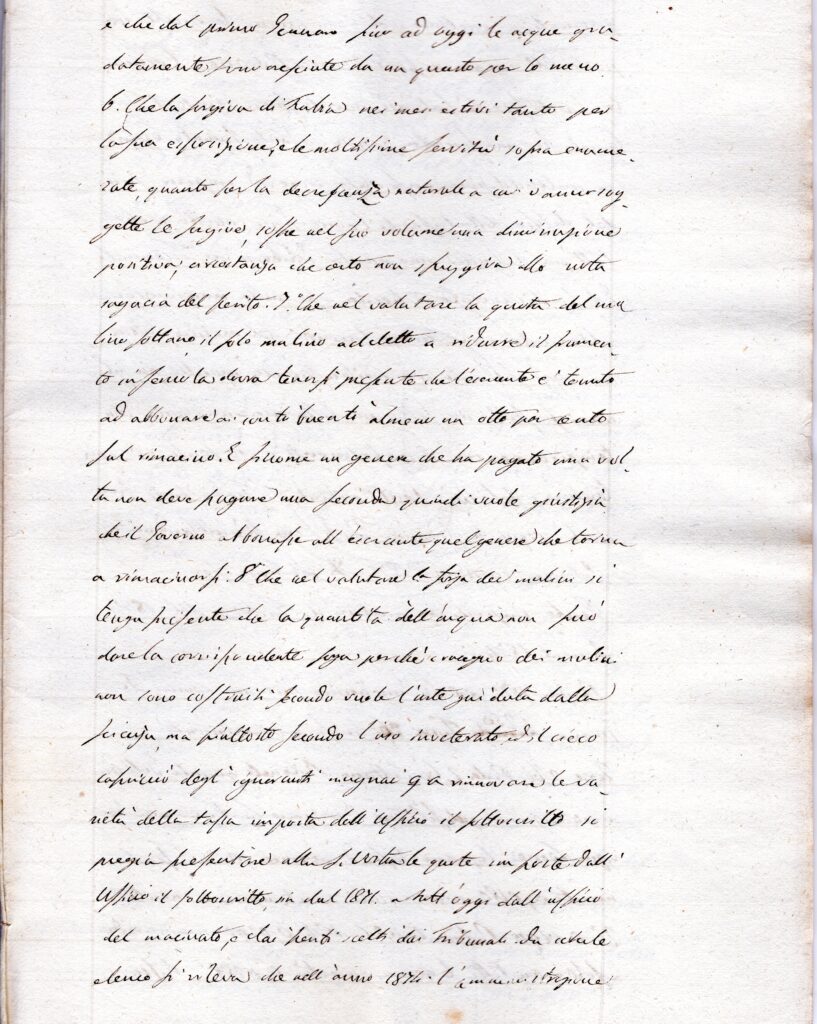 e che dal primo Gennaro fino ad oggi le acque gra-
datamente sono cresciute da un quarto per lo meno.
6. Che la sorgiva di nei mesi estivi tanto per
la sua esposizione, e le moltissime servitù sopra enume-
rate, quanto per la decrescenza naturale a cui vanno sog-
gette le sorgive, soffre nel suo volume una diminuzione
positiva, circostanza che certo non sfuggiva alla nota
sagacia del perito. 7.° Che nel valutare la quota del mu-
lino sottano, il solo mulino addetto a ridurre il frumen-
to in semola dovrà tenersi presente che l'esercente è tenuto
ad abbonare ai contribuenti almeno un otto per cento
sul rimacino. E siccome un genere che ha pagato una vol-
ta non deve pagare una seconda quindi vuole giustizia
che il Governo abbonasse all'esercente quel genere che torna
a rimacinarsi. 8° Che nel valutare la forza dei mulini si
tenga presente che la quantità dell'acqua non può
dare la corrispondente forza perché i mulini
non sono costruiti secondo vuole l'arte guidata dalla
scienza, ma piuttosto secondo l'uso inveterato, ed il cieco
capriccio degl'ignoranti mugnai 9 a rinnovare le va-
rietà della tassa imposta dall'Ufficio il sottoscritto si
pregia presentare alla S. Vostra le quote imposte dall'
Ufficio il sottoscritto, sin dal 1871. a tutt'oggi dall'ufficio
del macinato, e dai periti scelti dai Tribunali. Da
elenco si rileva che nell'anno 1874. l'amministrazione